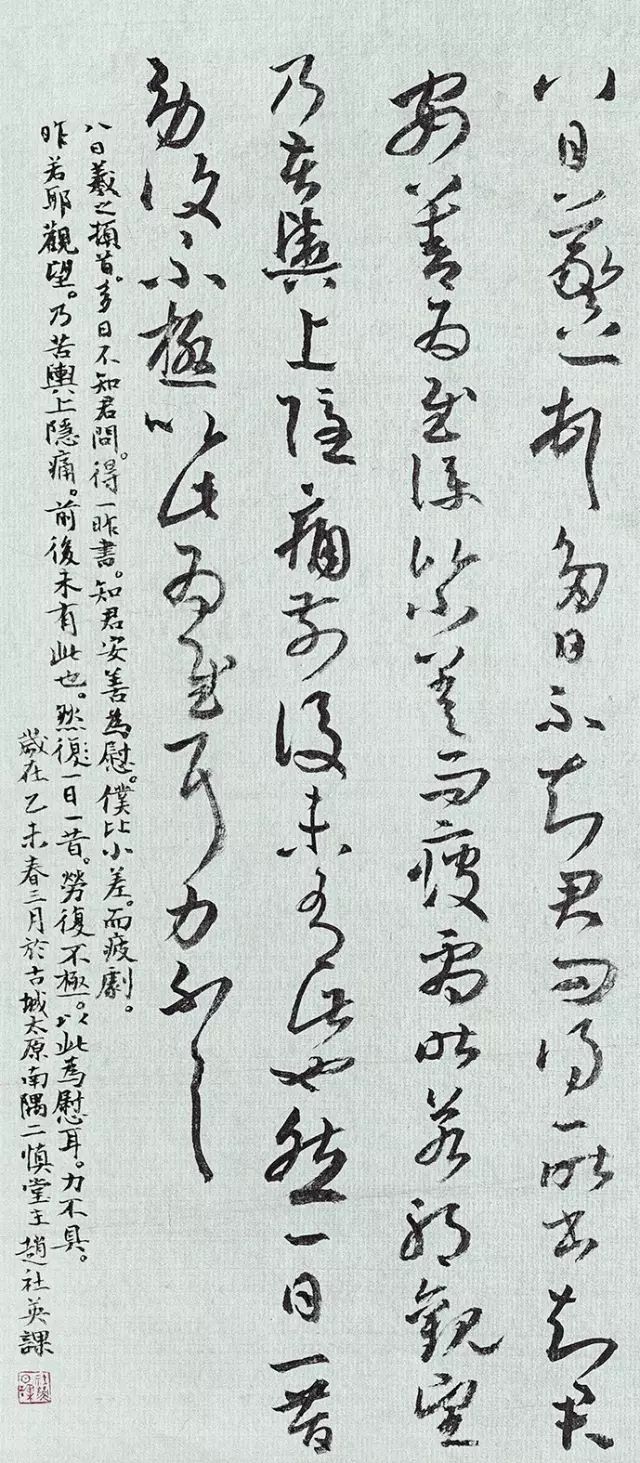 八日羲之頓首多日不知君問得一昨書知君
安善為慰僕比小差而疲劇昨若耶觀望
乃苦輿上隱痛前後未有此也然一日一昔
勞復不極以此為慰耳力不具
八日羲之頓首。多日不知君問。得一昨書。知君安善為慰。僕比小差。而疲劇。
昨若耶觀望。乃苦輿上隱痛。前後未有此也。然復一日一昔。勞復不極。以此為慰耳。力不具。
歲在乙未春三月於古城太原南隅二慎堂主趙社英課